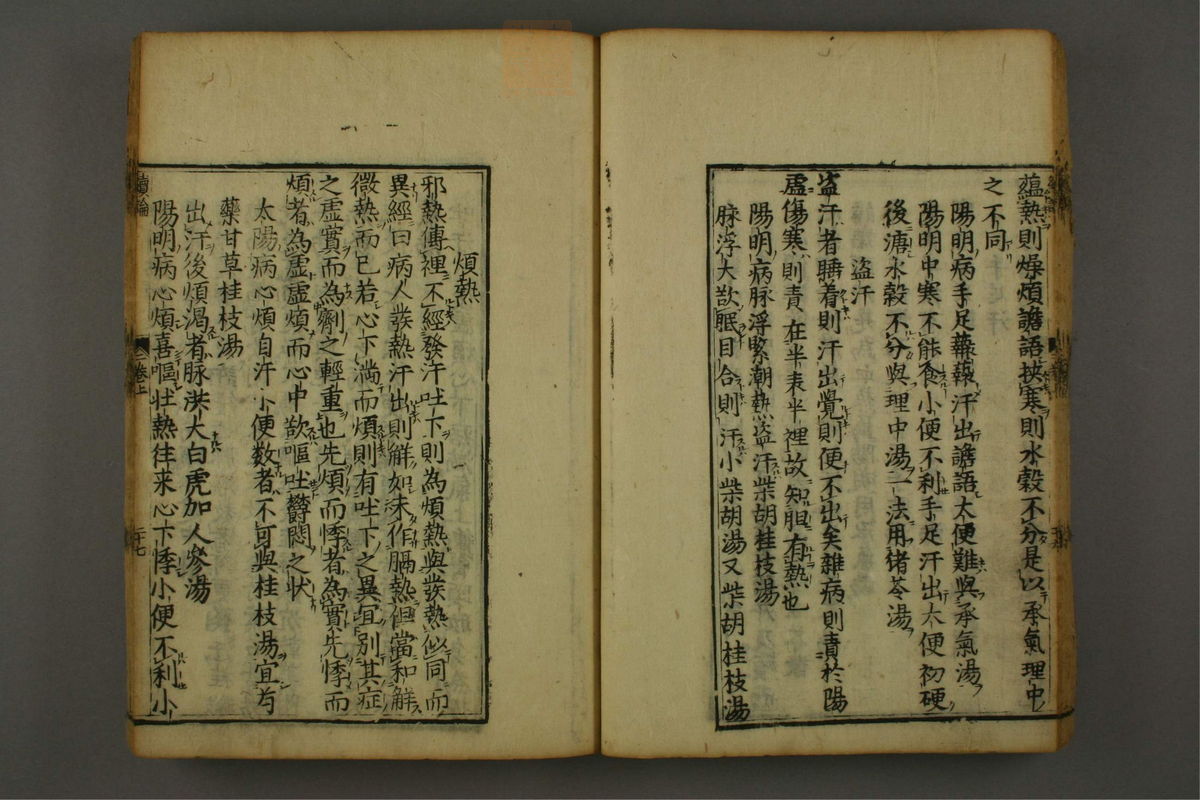 蘊熱則燥煩譫語挾寒則水穀不分是以承氣理中
之不同
陽明病手足濈濈汗出譫語大便難與承氣湯
陽明中寒不能食小便不利手足汗出大便初硬
後溏水穀不分與理中湯一法用猪苓湯
盜汗
盗汗者睡着則汗出覺則便不出矣雜病則責於陽
虚傷寒則責在半表半裡故知胆有熱也
陽明病脉浮緊潮熱盗汗柴胡桂枝湯
脉浮大欲眠目合則汗小柴胡湯又柴胡桂枝湯
煩熱
邪熱傳裡不經發汗吐下則為煩熱與發熱似同而
異經曰病人發熱汗出則解如未作膈熱但當和解
微熱而已若心下滿而煩則有吐下之異宜別其症
之虚實而為劑之輕重也先煩而悸者為實先悸而
煩者為虚虚煩而心中欲嘔吐欝悶之状
太陽病心煩自汗小便数者不可與桂枝湯宜芍
藥甘草桂枝湯
出汗後煩渇者脉洪大白虎加人參湯
陽明病心煩喜嘔壮熱往来心下悸小便不利小
續論
卷上
二十七